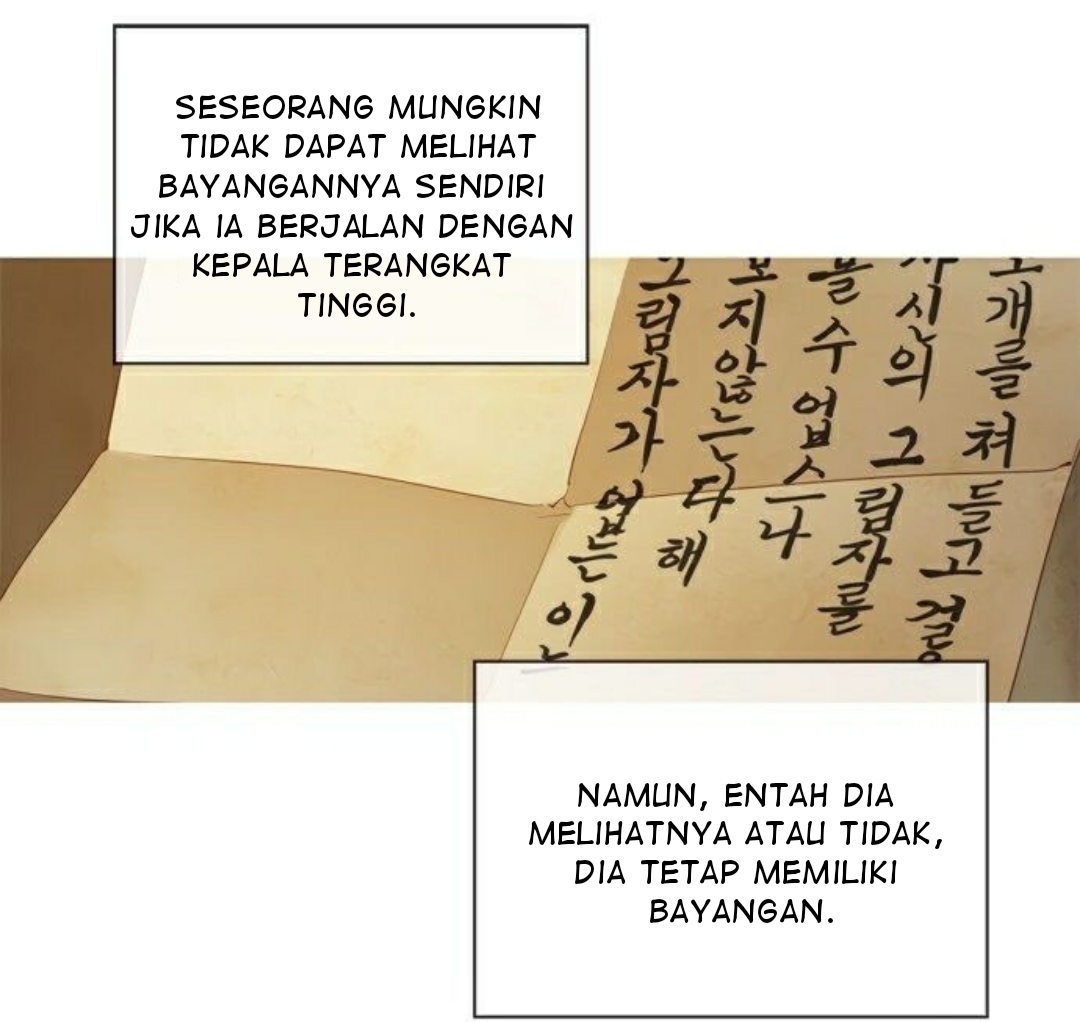 SESEORANG MUNGKIN
TIDAK DAPAT MELIHAT
BAYANGANNYA SENDIRI
JIKA IA BERJALAN DENGAN
KEPALA TERANGKAT
TINGGI.
개를 쳐 들고 걸
신의 그림자를
볼 수 업스나
보지 않는다 해
그림자가 업는 이
NAMUN, ENTAH DIA
MELIHATNYA ATAU TIDAK,
DIA TETAP MEMILIKI
BAYANGAN.